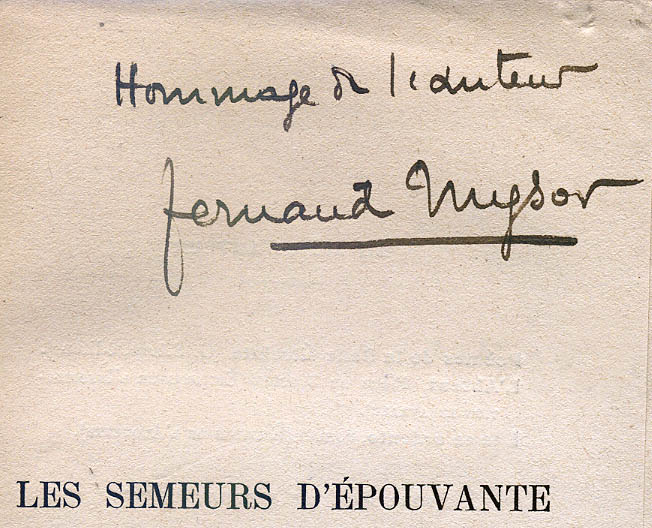 Hommage de l'auteur
Fernand Mysor
LES SEMEURS D'ÉPOUVANTE